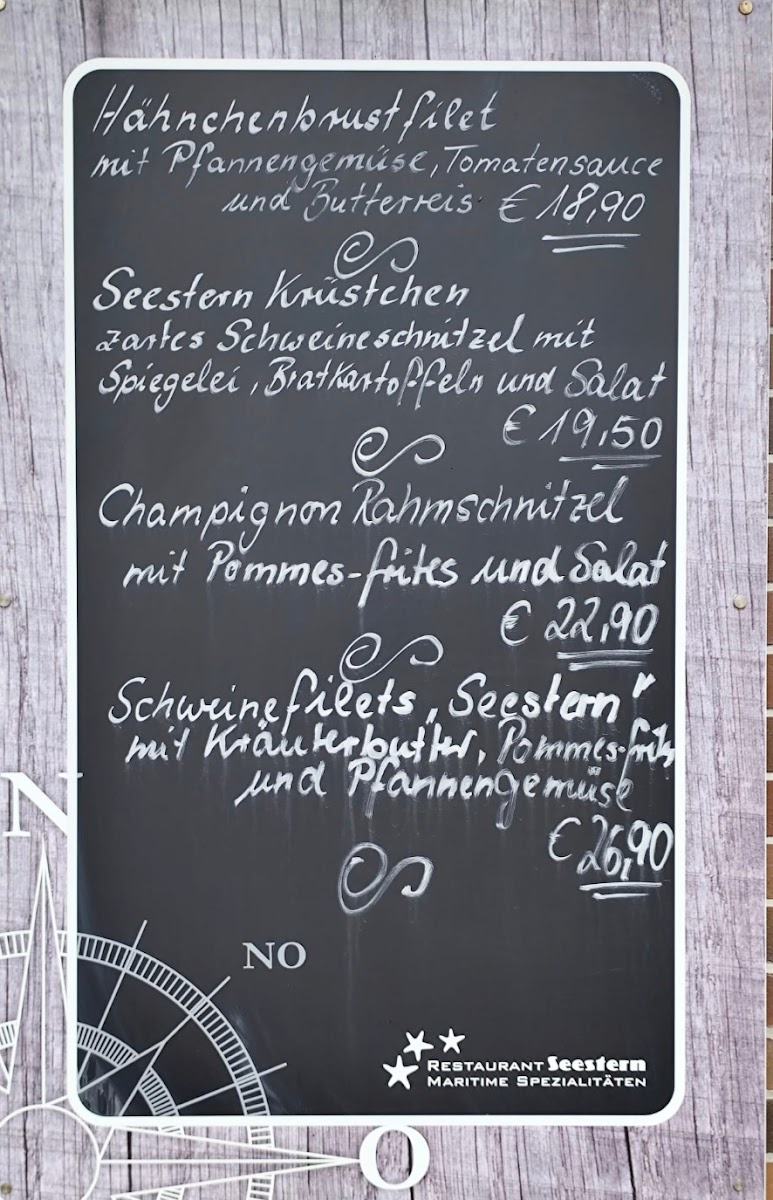 Hähnchenbrustfilet
mit Pfannengemüse, Tomatensauce
und Butterreis € 18,90
Seestern Krüstchen
zartes Schweineschnitzel mit
Spiegelei, Bratkartoffeln und Salat
€ 19,50
Champignon Rahmschnitzel
mit Pommes-frites und Salat
€ 22,90
Schweinefilets „Seestern"
mit Kräuterbutter, Pommes-frites
und Pfannengemüse
€ 26,90
N
NO
RESTAURANT Seestern
MARITIME SPEZIALITÄTEN
O